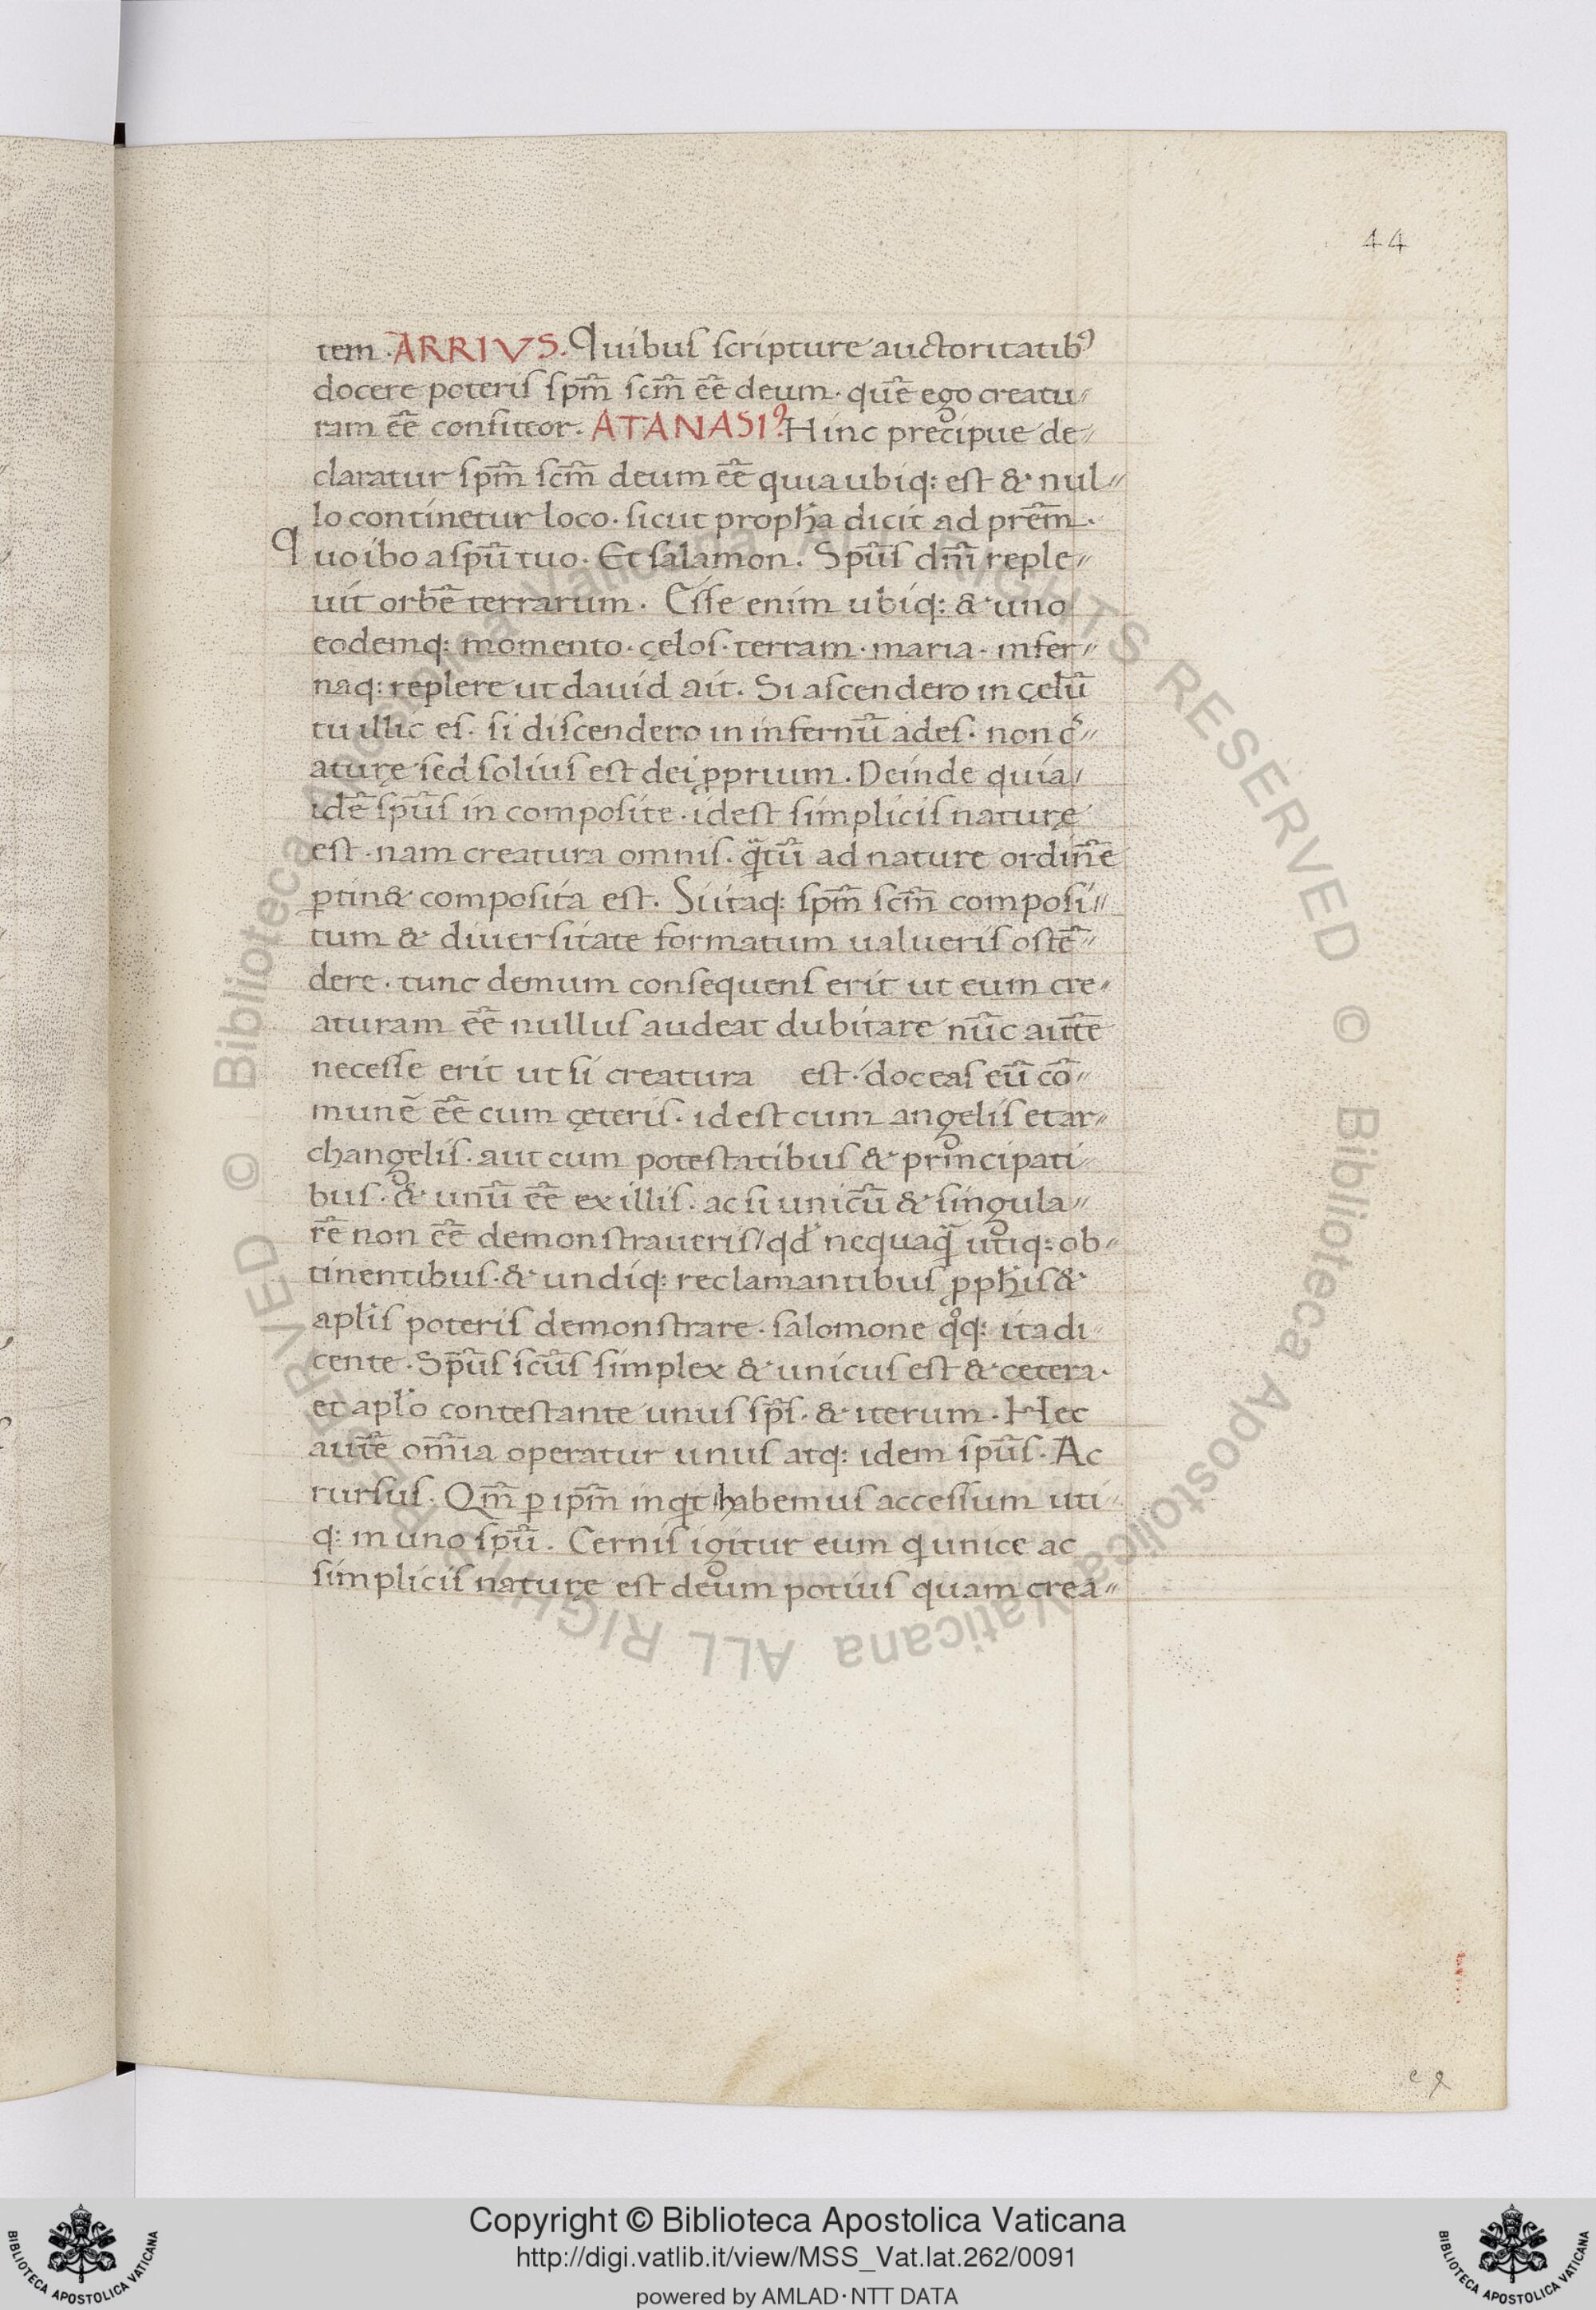 44
tem. ARRIVS. Quibus scripture auctoritatibꝰ
docere poteris sp̄m sc̄m ēē deum. quē ego creatu〃
ram ēē confiteor. ATANASIꝰ. Hinc precipue de〃
claratur sp̄m sc̄m deum ēē quia ubiq: est & nul〃
lo continetur loco. sicut propħa dicit ad prēm.
Quo ibo a spū tuo. Et salamon. Spūs dn̄i reple〃
uit orbē terrarum. Esse enim ubiq: & uno
eodemq: momento. cęlos. terram. maria. infer〃
naq: replere ut dauid ait. Si ascendero in cęlū
tu illic es. si discendero in infernū ades. non c̃〃
aturę sed solius est dei ꝓprium. Deinde quia
idē spūs in composite. idest simplicis naturę
est. nam creatura omnis. q̄tū ad nature ordinē
ꝑtin& composita est. Si itaq: sp̄m sc̄m composi〃
tum & diuersitate formatum ualueris ostē〃
dere. tunc demum consequens erit ut eum cre〃
aturam ēē nullus audeat dubitare nūc autē
necesse erit ut si creatura est. doceas eū cō〃
munē ēē cum cęteris. idest cum angelis et ar〃
changelis. aut cum potestatibus & principati〃
bus. & unū ēē ex illis. ac si unicū & singula〃
rē non ēē demonstraueris/ qđ nequaq̄ utiq: ob〃
tinentibus. & undiq: reclamantibus ꝓpħis &
apl̄is poteris demonstrare. salomone qͦq: ita di〃
cente. Spūs scūs simplex & unicus est & cetera.
et apl̄o contestante unus sp̄s. & iterum. Hec
autē om̄ia operatur unus atq: idem spūs. Ac
rursus. Qm̄ ꝑ ip̄m inqt habemus accessum uti〃
q: in uno spū. Cernis igitur eum q unice ac
simplicis naturę est deum potius quam crea〃
Copyright © Biblioteca Apostolica Vaticana
http://digi.vatlib.it/view/MSS_Vat.lat.262/0091
powered by AMLAD·NTT DATA
BIBLIOTECA APOSTOLICA VATICANA
BIBLIOTECA APOSTOLICA VATICANA
© Biblioteca Apostolica Vaticana ALL RIGHTS RESERVED © Biblioteca Apostolica Vaticana ALL RIGHTS RESERVED